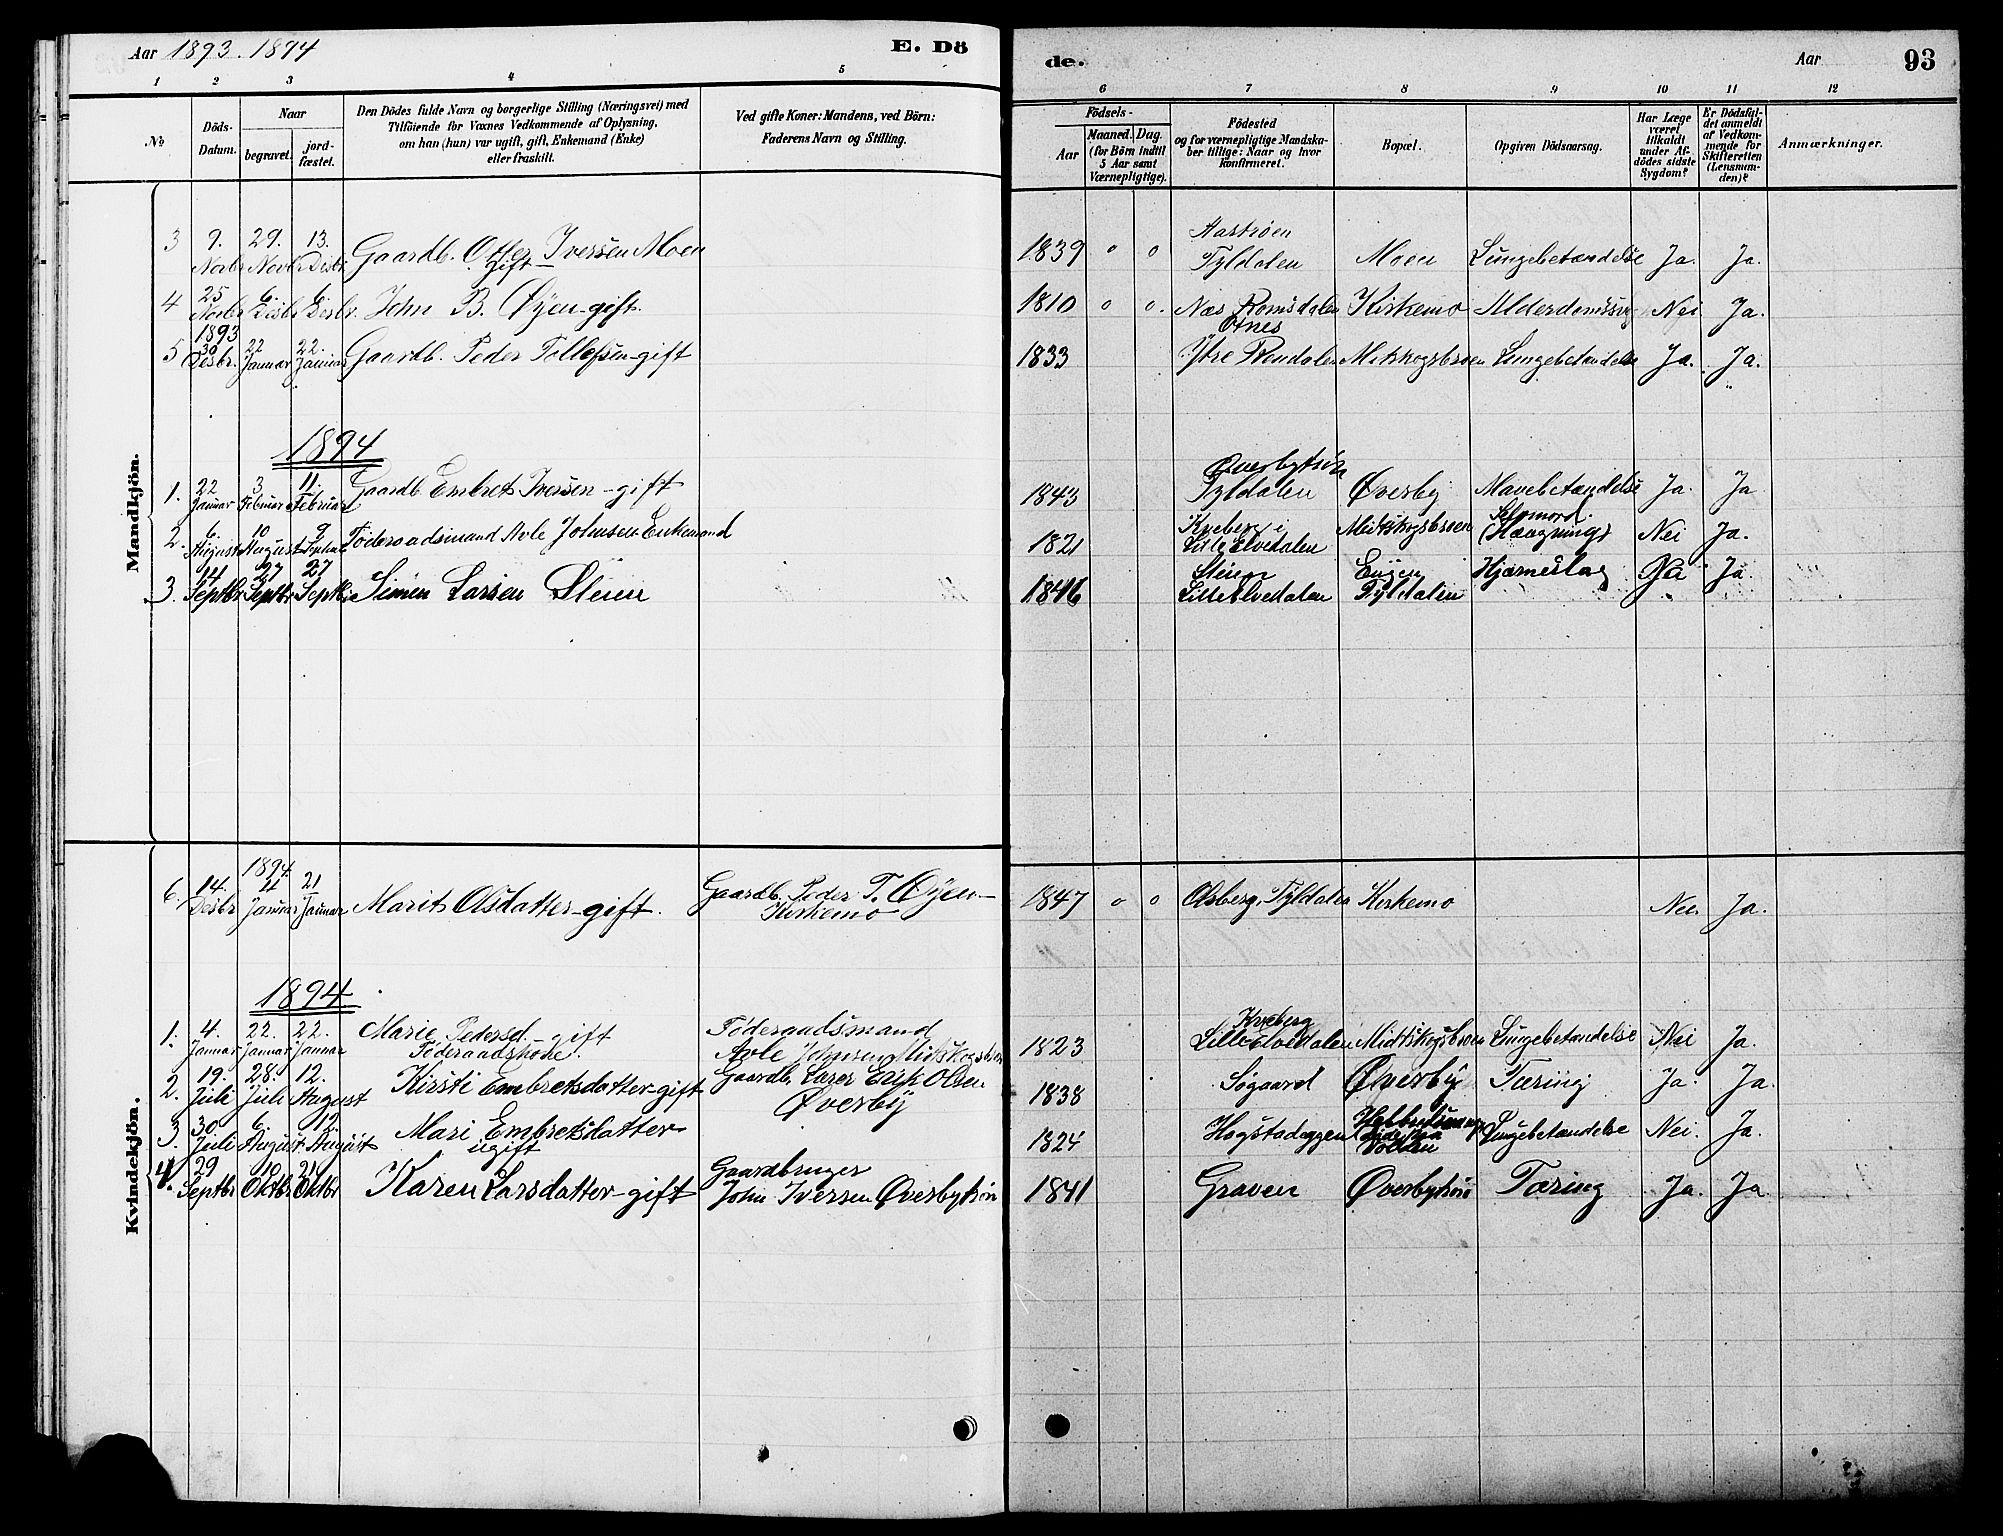 Aar 1893. 1894
E. Dö
de.
Aar
93
1 2 3 4 5 6 7 8 9 10 11 12
No
Döds-Datum.
Naar
begravet.
jord-fæstet.
Den Dödes fulde Navn og borgerlige Stilling (Næringsvei) med
Tilföiende for Voxnes Vedkommende af Oplysning,
om han (hun) var ugift, gift, Enkemand (Enke)
eller fraskilt.
Ved gifte Koner: Mandens, ved Börn:
Faderens Navn og Stilling.
Födsels-
Aar
Maaned. Dag.
(for Börn indtil
5 Aar samt
Værnepligtige).
Födested
og for værnepligtige Mandska-
ber tillige: Naar og hvor
konfirmeret.
Bopæl.
Opgiven Dödsaarsag.
Har Læge
været
tilkaldt
under Af-
dödes sidste
Sygdom?
Er Dödsfal-
det anmeldt
af Vedkom-
mende for
Skifteretten
(Lensman-
den)?
Anmærkninger.
Mandkjön.
3 9. Novbr 29. Novbr 13. Desbr. Gaardb. Otter Iversen Moen gift 1839 o o Aastrøen Tyldalen Moen Lungebetændelse Ja. Ja.
4 25 Novbr 6. Desbr 6. Desbr. John B. Øyen-gift. 1810 o o. Næs Romsdalen Kirkemo Nei Ja.
5 1893 30 Desbr. 22 Januar 22. Januar Gaardb. Peder Tollefsen-gift 1833 Otnes Ytre Rendalen Midtskogsbroen Lungebetændelse Ja. Ja.
1894
1. 22 Januar 3 Februar 11. Februar Gaardb Embret Iversen-gift 1843 Øverbytrøn Tyldalen Øverby Mavebetændelse Ja. Ja
2. 6. August 10 August 9 Septbr Føderaadsmand Avle Johnsen Enkemand 1821 Kveberg i Lille Elvedalen Midtskogsbroen Selvmord. (Hængning) Nei Ja.
3. 14 Septbr 27 Septbr 27 Septbr Simen Larsen Steien 1846 Steien Lille Elvedalen Eugen Tyldalen Hjerneslag Nei Ja
Kvindekjön.
6. 14. Desbr 1894 11 Januar 21 Januar Marit Olsdatter-gift. Gaardb. Peder T. Øyen- Kirkemo 1847 o o Aasberg, Tyldalen Kirkemo Nei Ja.
1894
1. 4. Januar 22. Januar 22. Januar Marie Pedersd. gift Føderaadskone. Føderaadsmand Avle Johnsen Midtskogsbroen 1823 Kveberg Lille Elvedalen Midtskogsbroen Lungebetændelse Nei Ja.
2. 19. Juli 28. Juli 12. August Kirsti Embretsdatter-gift Gaardb. Erik Olsen Øverby 1838 Søgaard Øverby Tæring Ja. Ja.
3. 30 Juli 6. August 12. August Mari Embretsdatter ugift 1824 Hogstadeggen Lungebetændelse Nei. Ja.
4. 29 Septbr 10 Oktbr 21 Oktbr Karen Larsdatter-gift Gaardbruger John Iversen Øverbytrøn 1841 Graven Øverbytrøn Tæring Ja. Ja